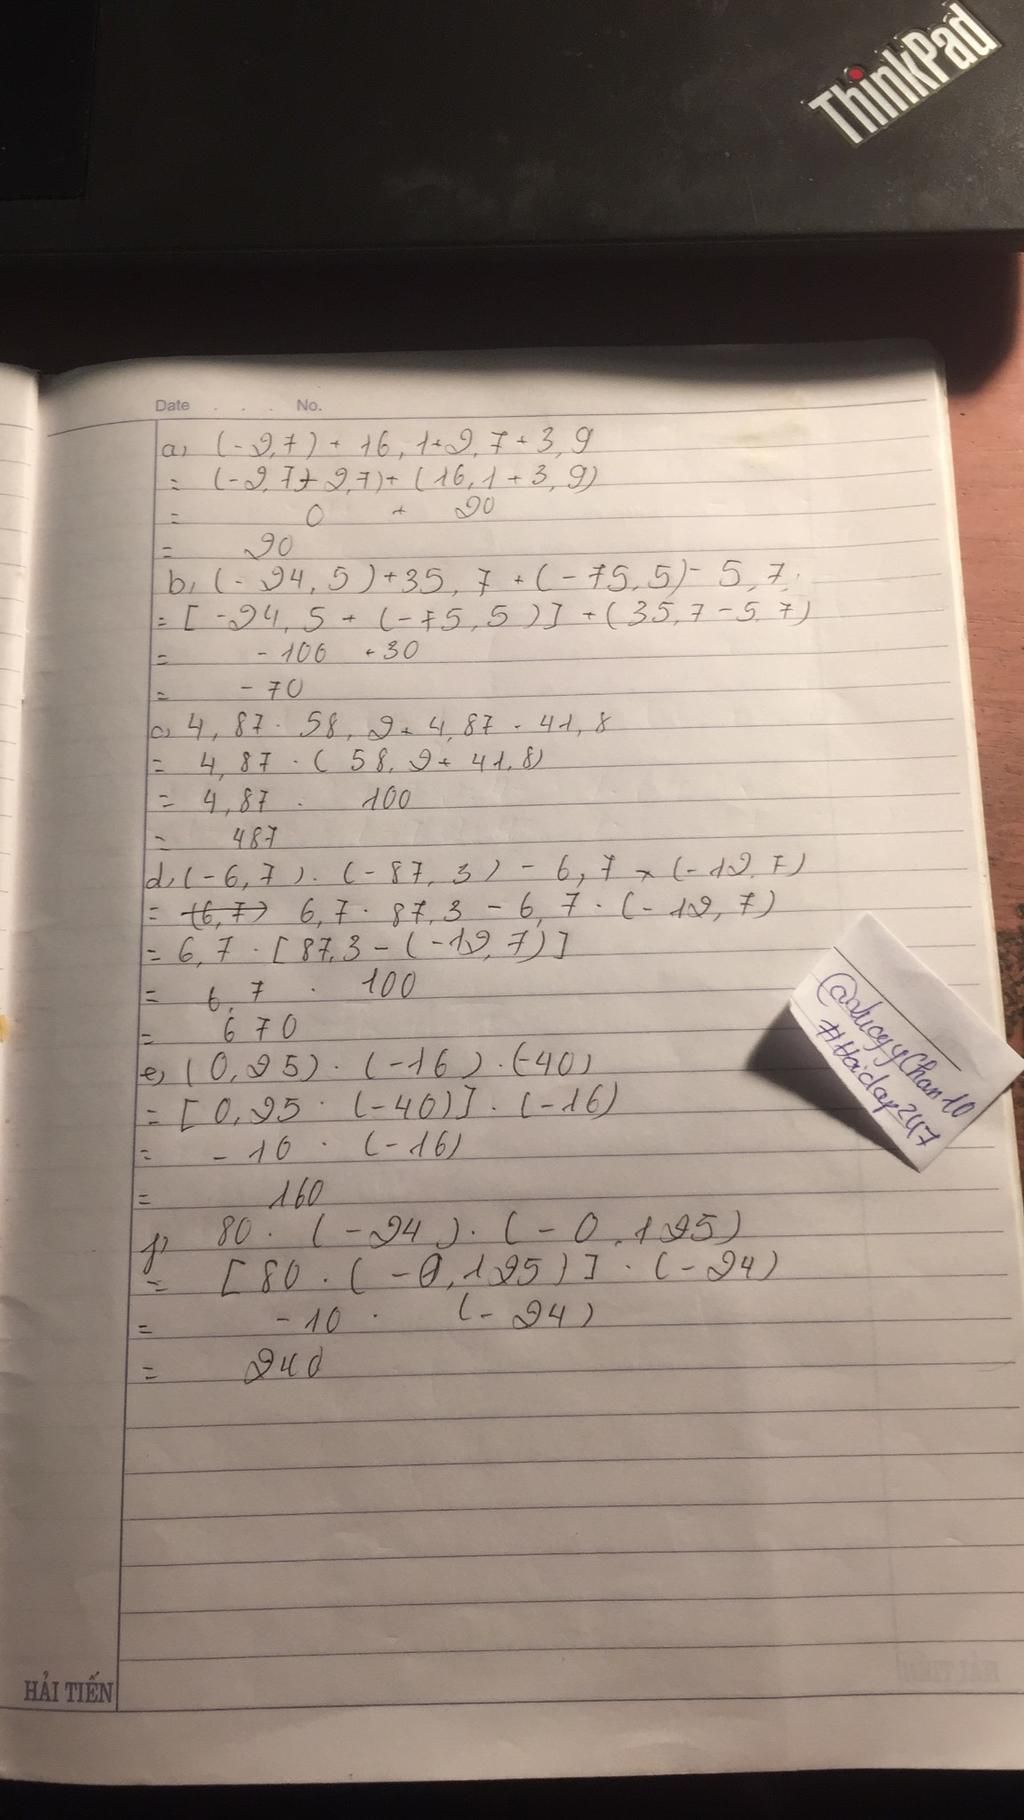 ThinkPad
Date . . . No.
a, (-2,7) + 16,1+2,7+3,9
= (-2,7+2,7)+(16,1+3,9)
= 0 + 20
= 20
b, (-24,5)+35,7+(-75,5)-5,7
= [-24,5+(-75,5)]+(35,7-5,7)
= -100 +30
= -70
c, 4,87 . 58,2+4,87 . 41,8
= 4,87 . (58,2+41,8)
= 4,87 . 100
= 487
d, (-6,7) . (-87,3) - 6,7 x (-12,7)
= (6,7) 6,7 . 87,3 - 6,7 . (-12,7)
= 6,7 . [87,3-(-12,7)]
= 6,7 . 100
= 670
e, (0,25) . (-16) . (-40)
= [0,25 . (-40)] . (-16)
= -10 . (-16)
= 160
f, 80 . (-24) . (-0,125)
= [80 . (-0,125)] . (-24)
= -10 . (-24)
= 240
#Hoidap247
HẢI TIẾN